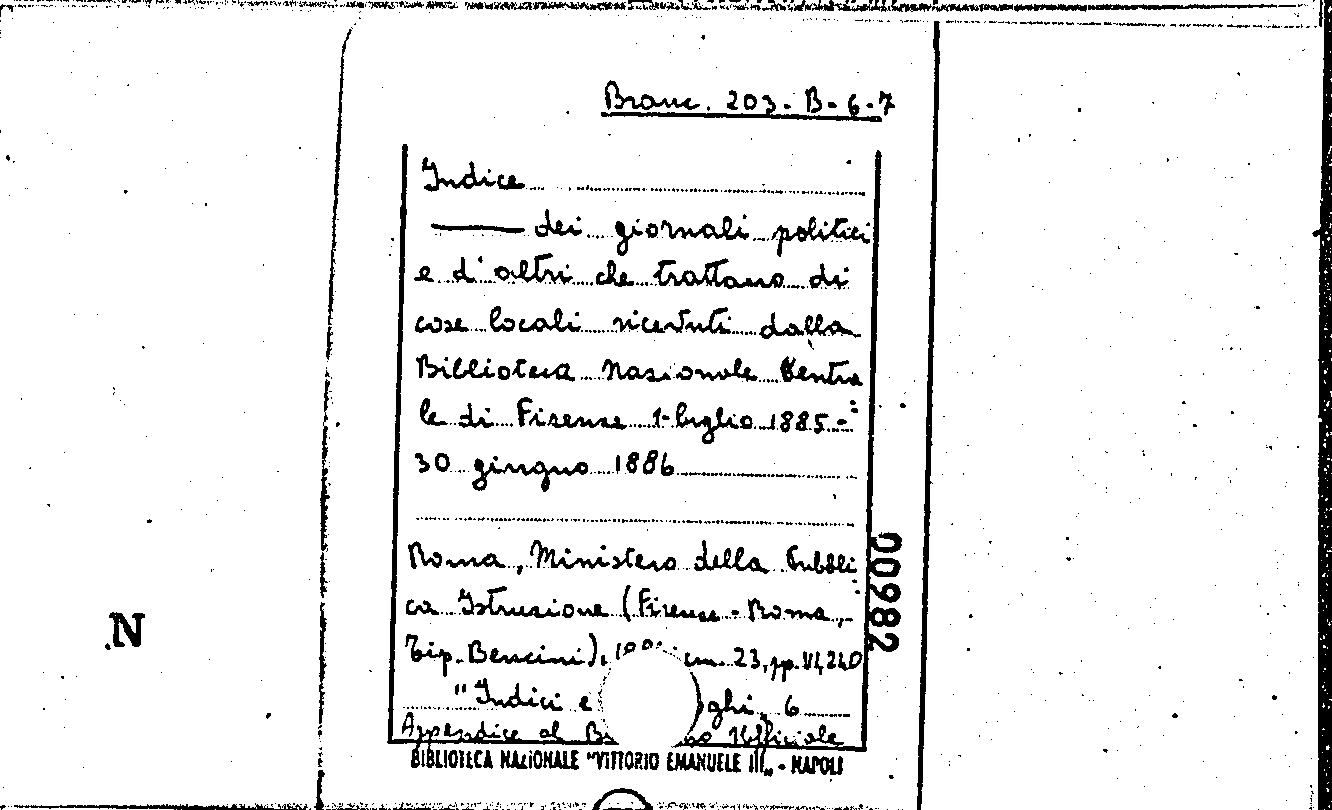 Branc. 203-B-6-7
Indice
dei giornali politici
e d'altri che trattano di
cose locali ricevuti dalla
Biblioteca Nazionale Centra
le di Firenze 1-luglio 1885-
30 giugno 1886
Roma, Ministero della Pubbli
ca Istruzione (Firenze-Roma,
Tip. Bencini), cm. 23, pp. VI, 240
"Indici e 6
Appendice al Ufficiale
BIBLIOTECA NAZIONALE "VITTORIO EMANUELE III„ - NAPOLI
00982
N